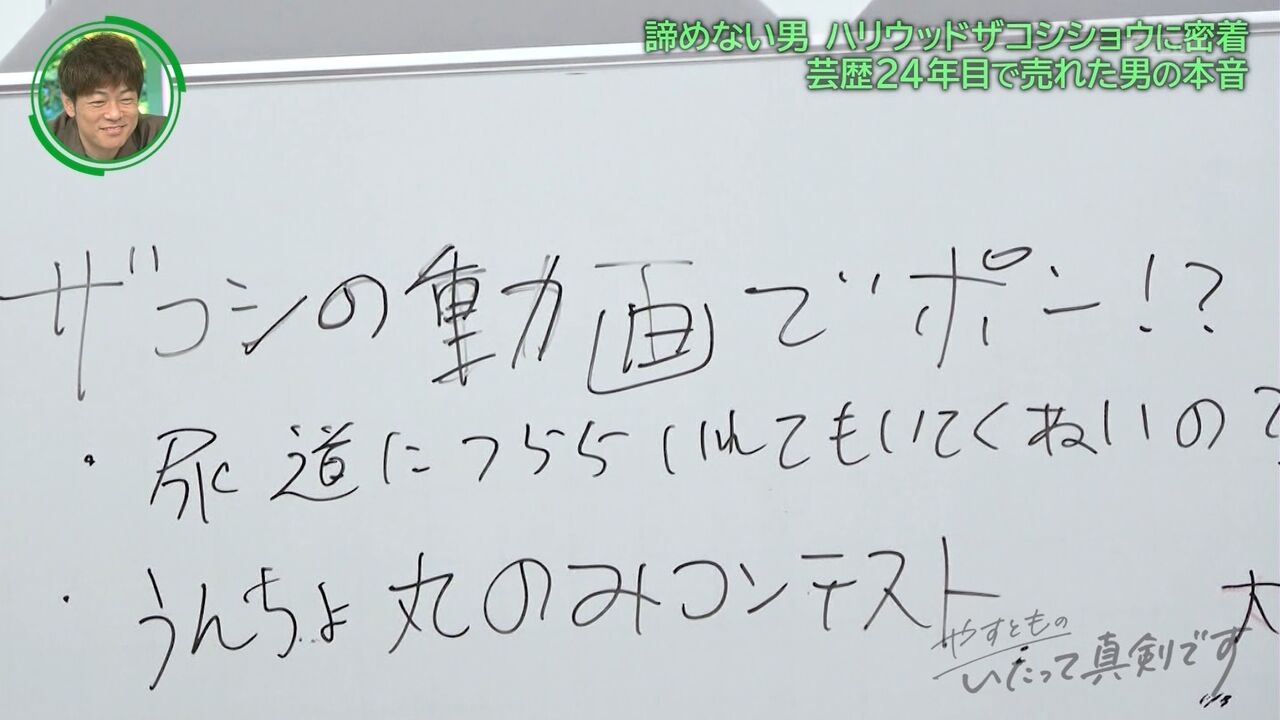 諦めない男 ハリウッドザコシショウに密着
芸歴24年目で売れた男の本音
ザコシの動画でポン!?
・尿道につららいれてもいてくねいの?
・うんちょ丸のみコンテスト
大
やすとものいたって真剣です